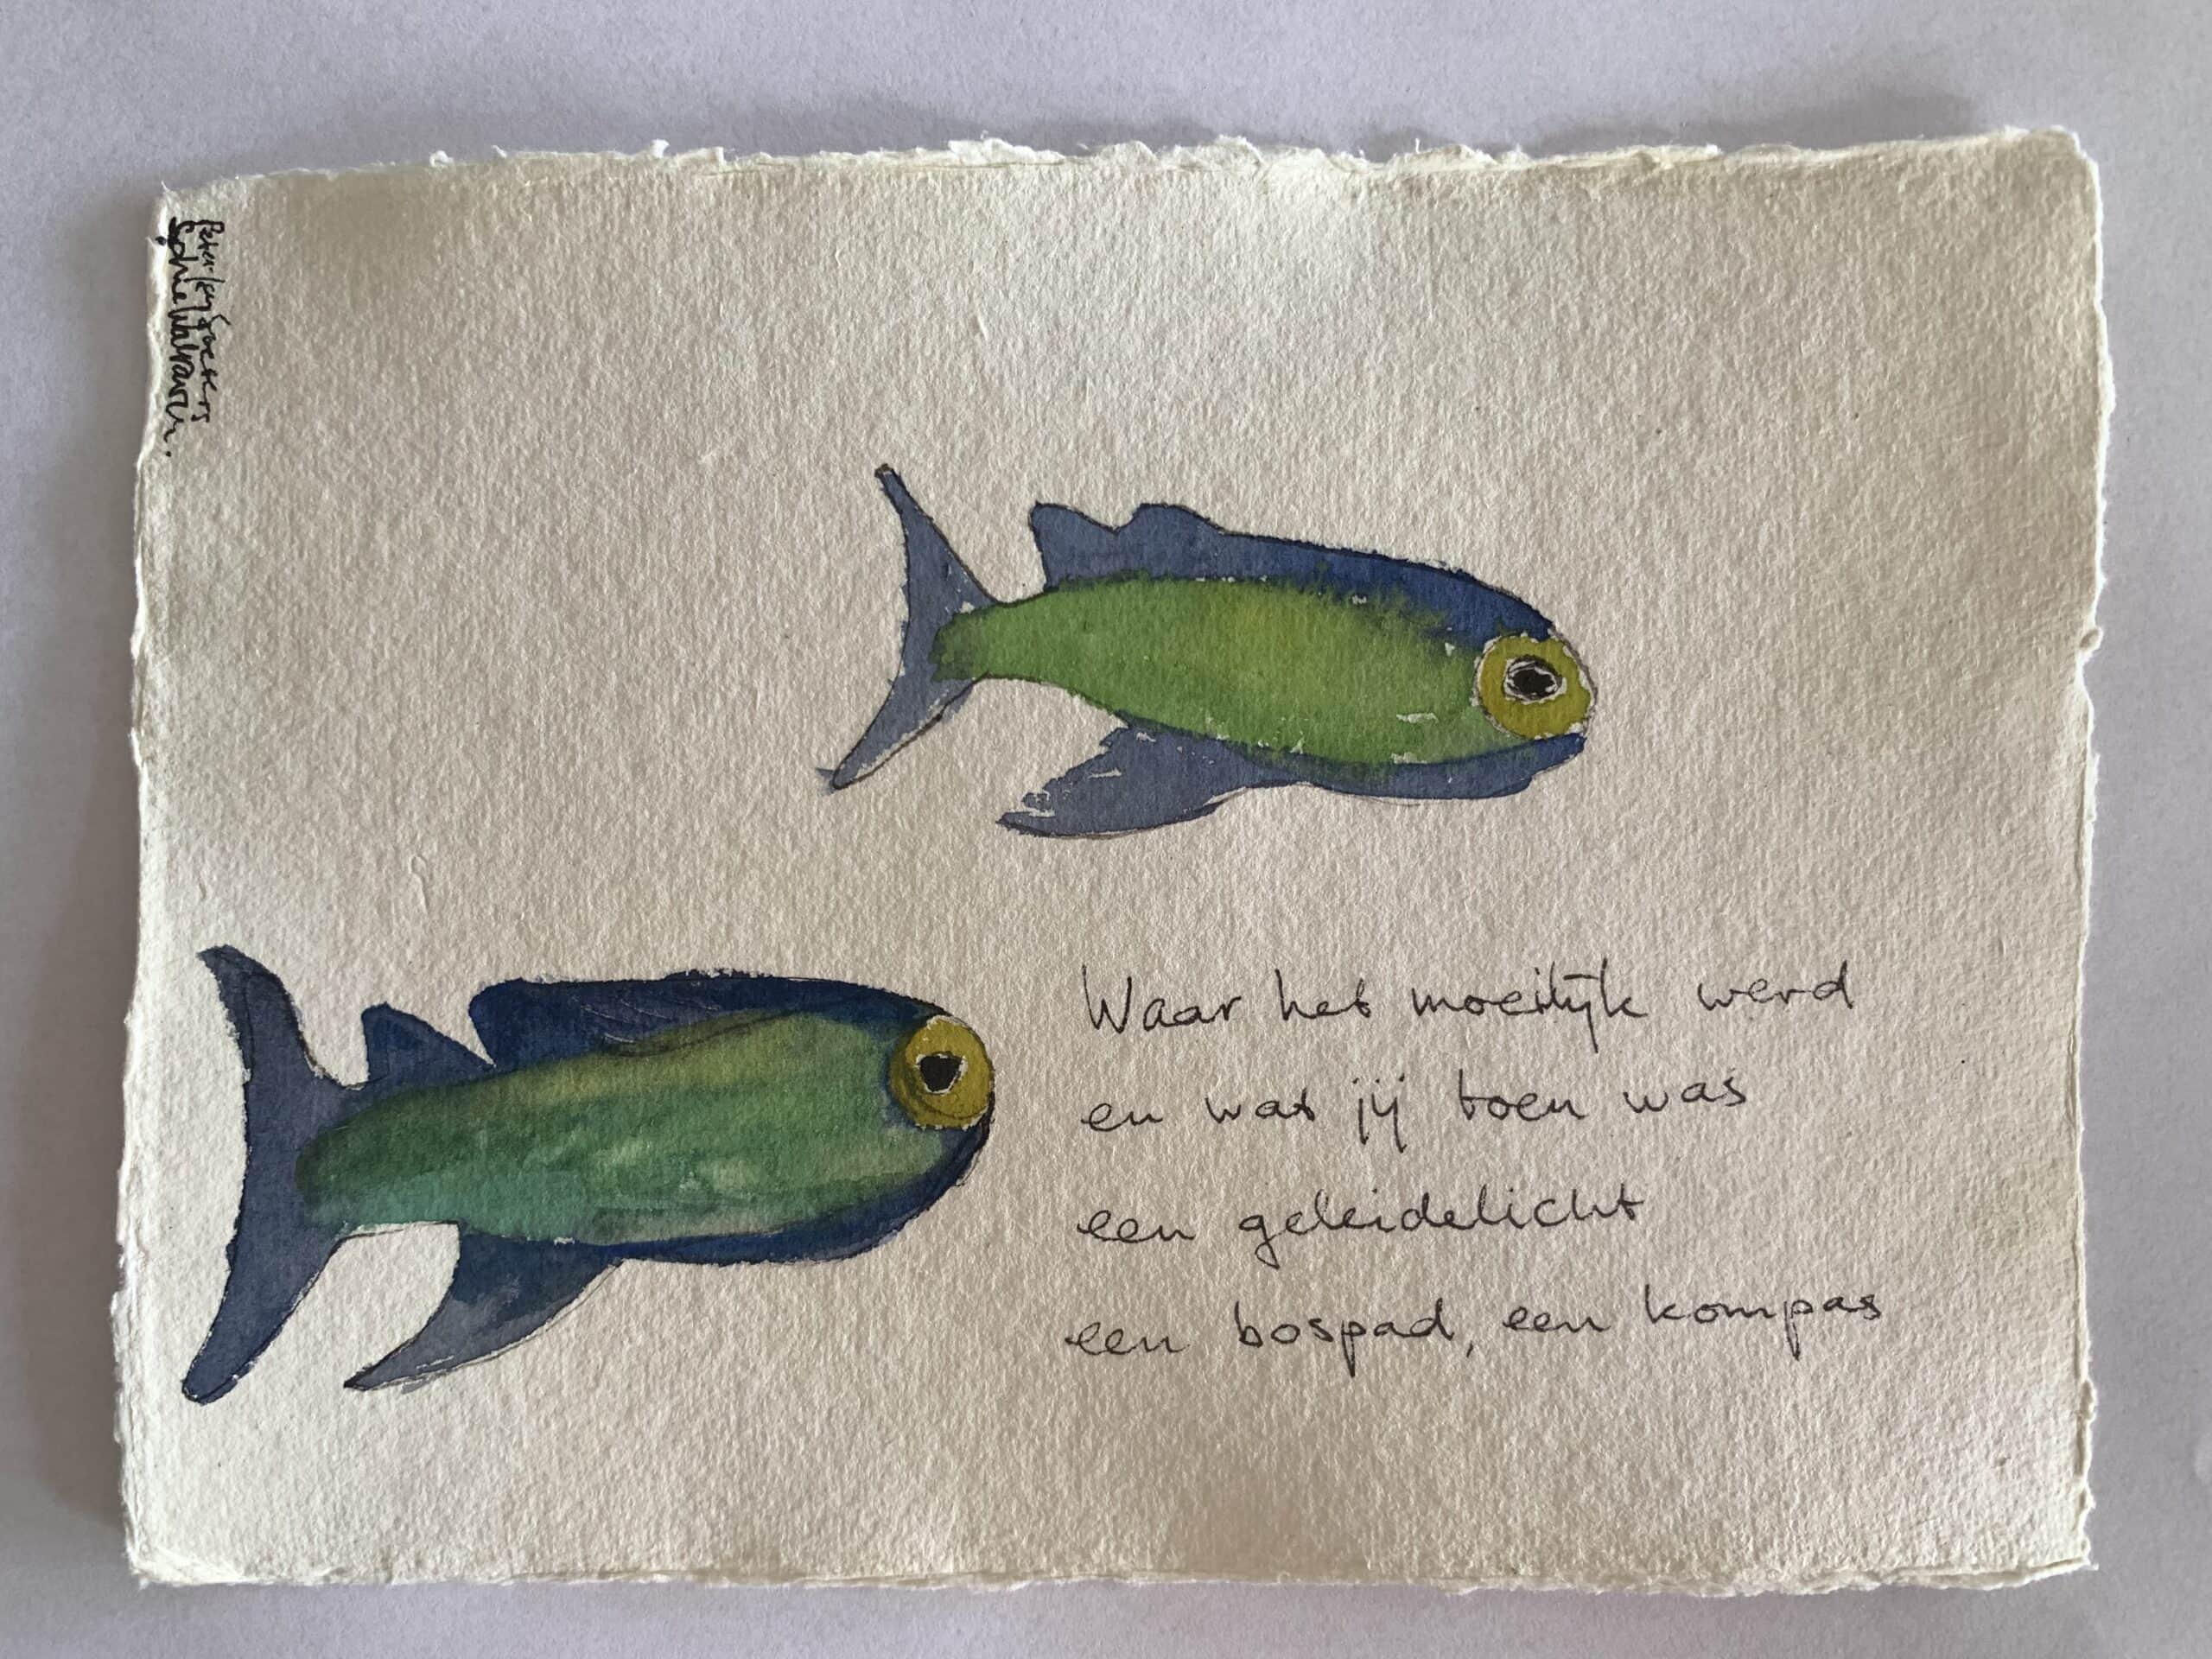 Peter
Sofhie Walraven.
Waar het moeilijk werd
en wat jij toen was
een geleidelicht
een bospad, een kompas